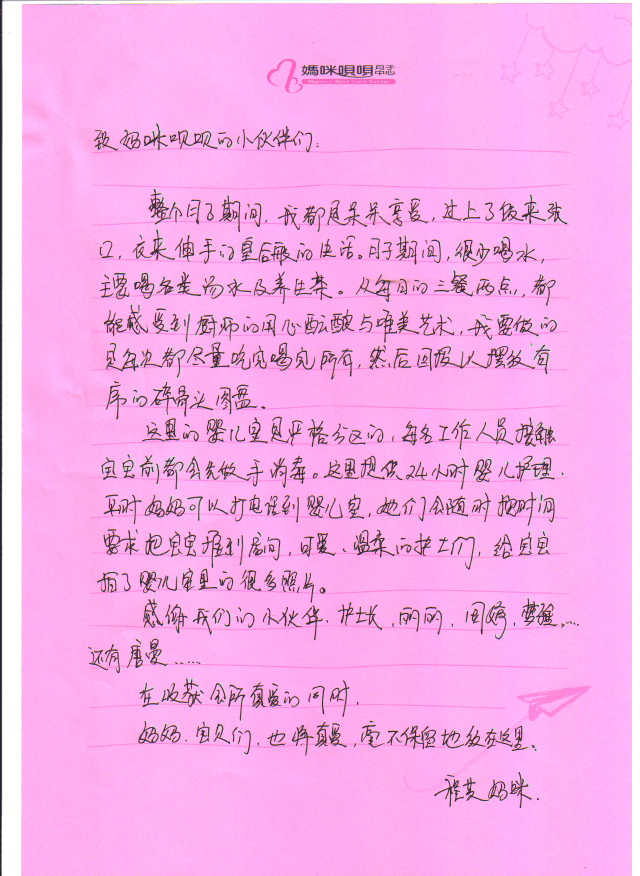 媽咪唄唄
致妈咪呗呗的小伙伴们:
整个月子期间,我都是呆呆享受,过上了饭来张
口,衣来伸手的皇后般的生活。月子期间,很少喝水,
主要喝各类汤水及养生茶。从每日的三餐两点,都
能感受到厨师的用心酝酿与唯美艺术,我要做的
只每次都尽量吃完喝完所有,然后回报以摆放有
序的碎骨头图盘。
这里的婴儿室是严格分区的,每名工作人员接触
宝宝前都会先做手消毒。这里提供24小时婴儿护理.
平时妈妈可以打电话到婴儿室,她们会随时按时间
要求把宝宝推到房间,可爱、温柔的护士们,给宝宝
拍了婴儿室里的很多照片。
感谢我们的小伙伴.护士长,丽丽,
还有唐曼……
在收获会所真爱的同时,
妈妈.宝贝们,也将真爱,毫不保留地放在这里。
妈咪.